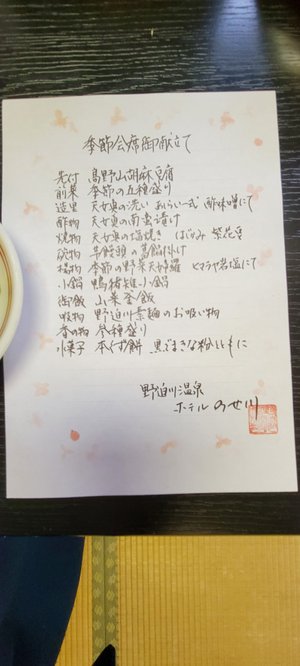 季節会席御献立て
先付 高野山胡麻豆腐
前菜 季節の五種盛り
造里 天女魚の洗い あらい一式 酢味噌にて
酢物 天女魚の南蛮漬け
焼物 天女魚の塩焼き はじかみ 紫花豆
炊物 の葛餡掛け
揚物 季節の野菜天婦羅 ヒマラヤ岩塩にて
小鍋 鴨雑小鍋
御飯 山菜釜飯
吸物 野迫川素麺のお吸い物
香の物 参種盛り
水菓子 本くず餅 黒ごまきな粉とともに
野迫川温泉
ホテルのせ川